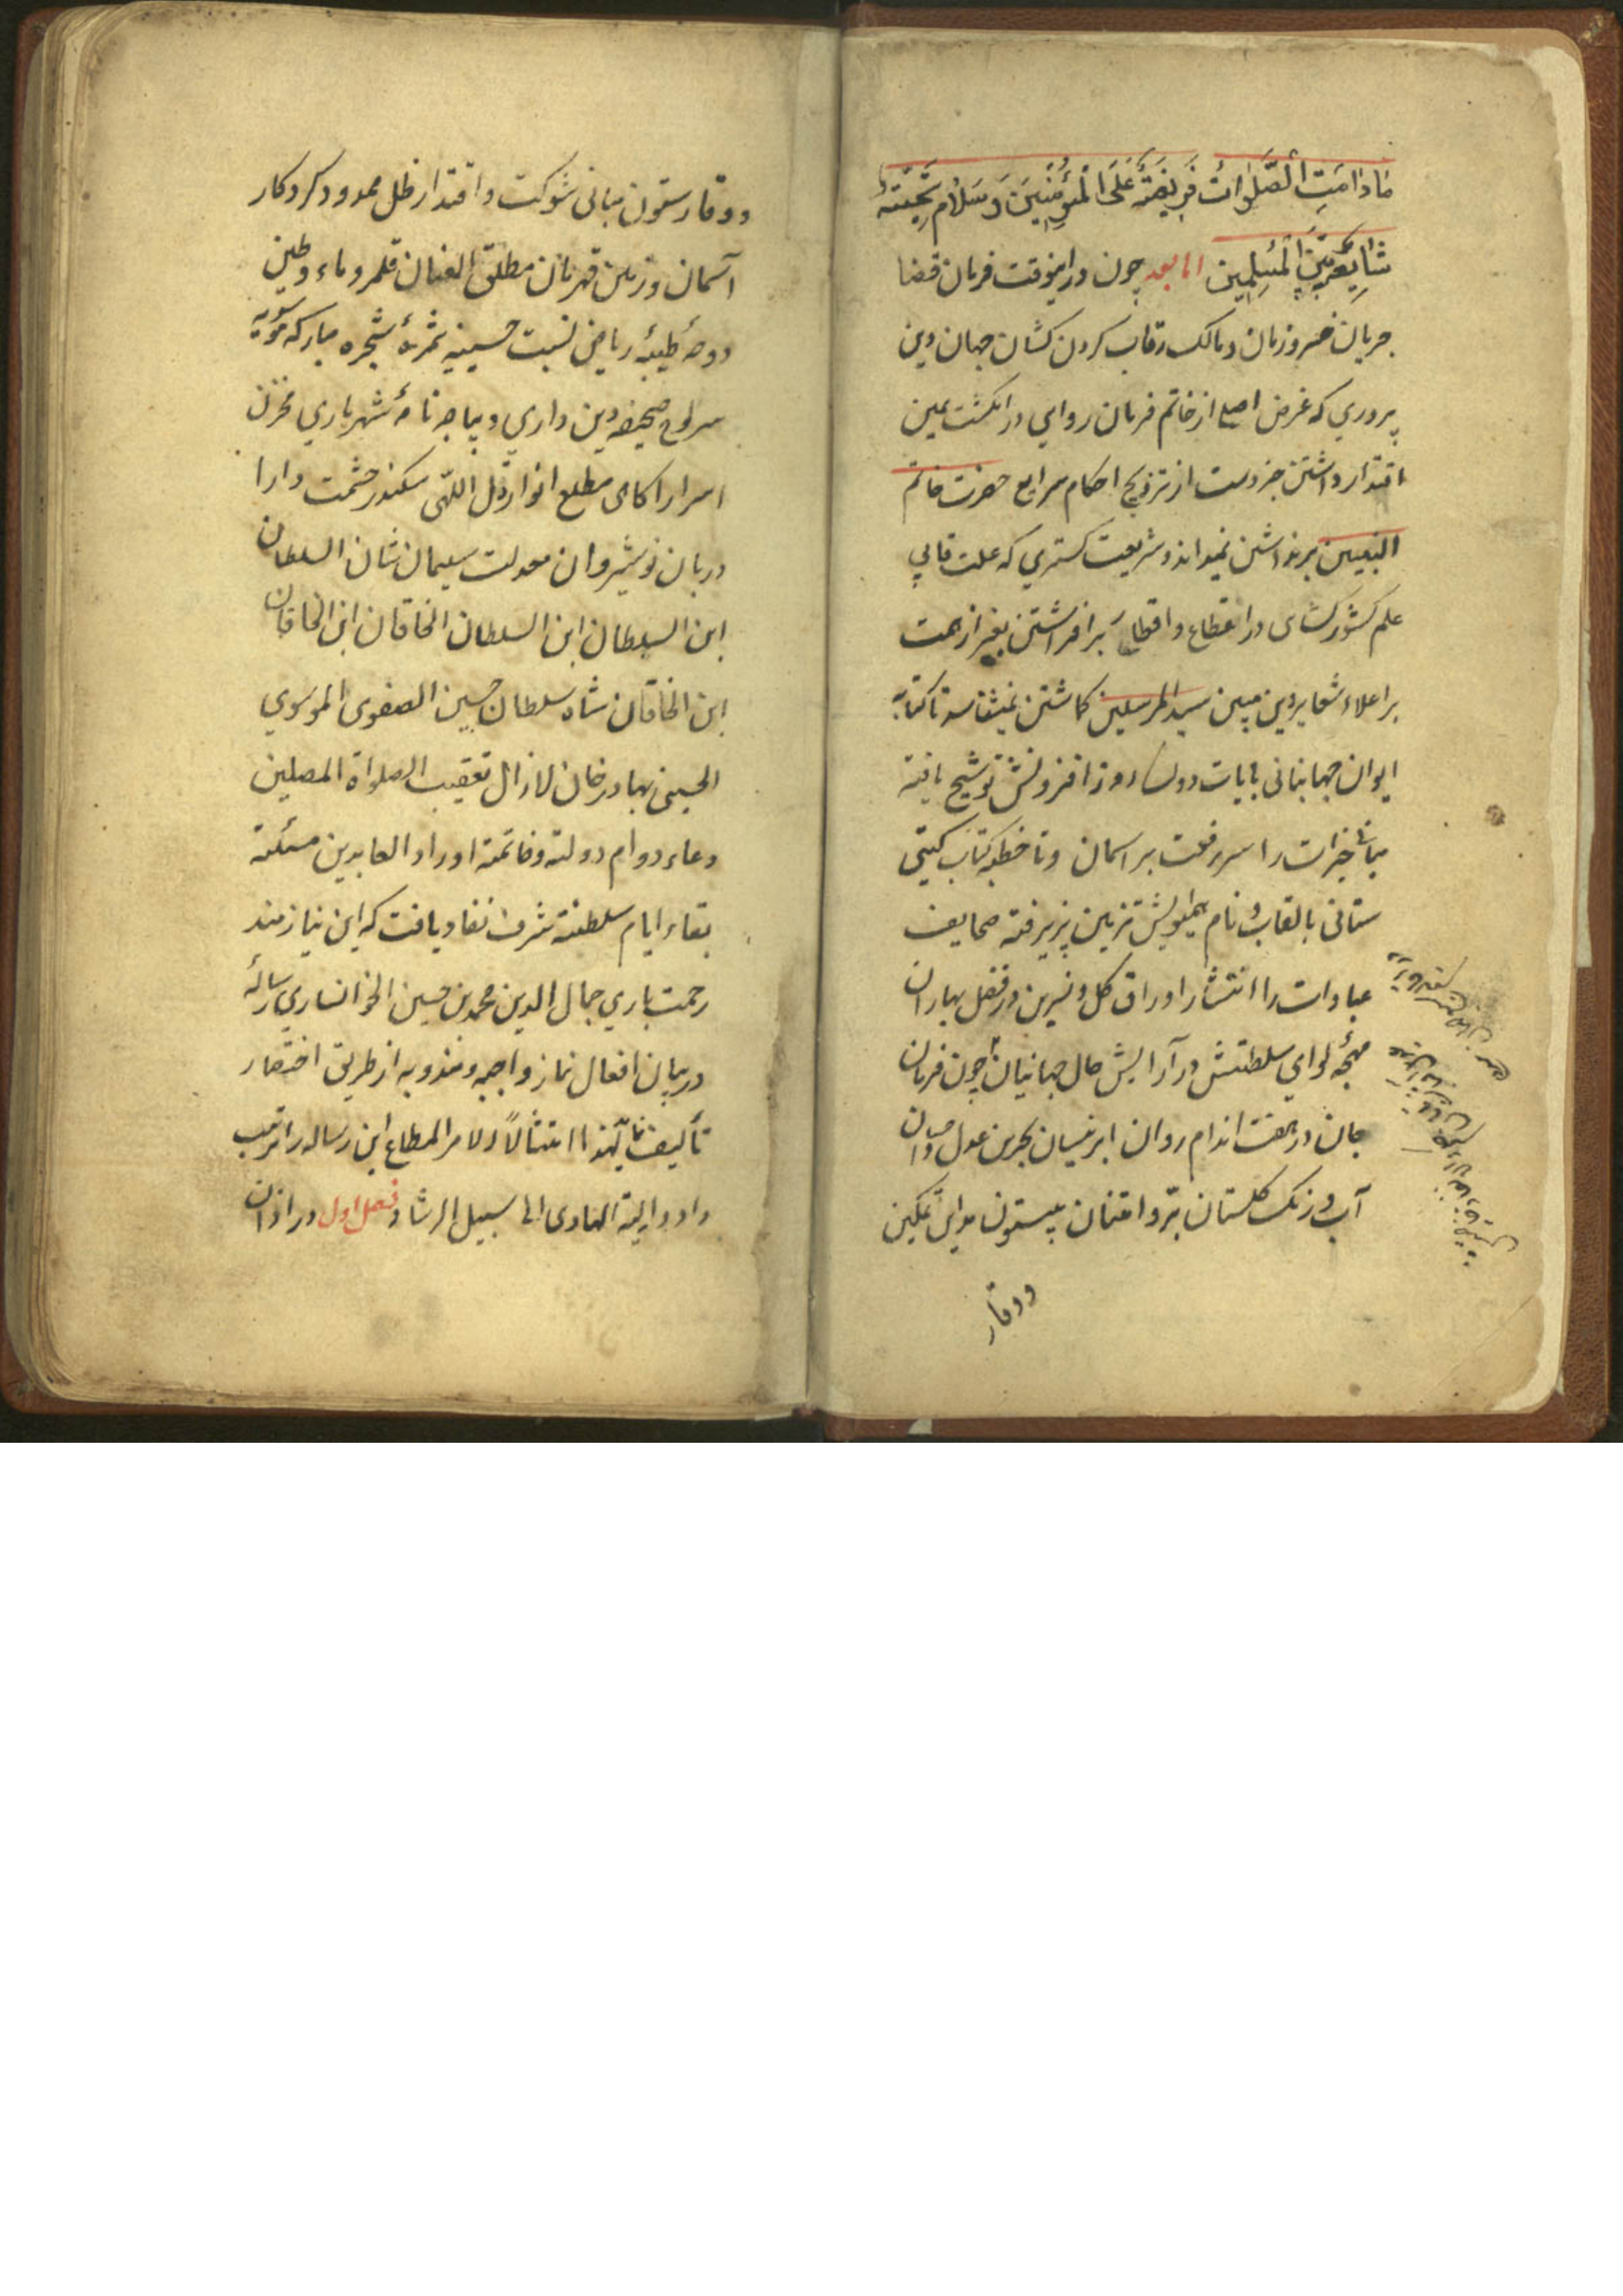 مَا دَامَتِ الصَّلَوَاتُ فَرِيضَةً عَلَى الْمُؤْمِنِينَ وَسَلَامٌ تَحِيَّتُهُ
شَايِعَةٌ بَيْنَ الْمُسْلِمِينَ اما بعد چون دراینوقت فرمان قضا
جریان خسرو زمان و مالک رقاب کردن کشان جهان دین
پروری که غرض اصلع از خاتم فرمان روایی در انکشت یمین
اقتدار داشتن جز دست از ترویج احکام سرایع حضرت خاتم
النبیین برنداشتن نمیداند و شریعت کستری که علت قایی
علم کشور کشای در اعطاع و اقطار برافراشتن بغیر از همت
بر اعلاء شعایر دین مبین سید المرسلین کماشتن نمیشناسد تا کتابه
ایوان جهانبانی بایات دولت روز افزونش توشیح یافته
مبانی خیرات را سر رفعت بر اسمان و تا خطبه کتاب کیتی
ستانی بالقاب و نام همایونش تزیین پزیرفته صحایف
عبادات را انتشار اوراق کل و نسرین در فصل بهاران
مهجهٔ لوای سلطنتش در آرایش حال جهانیان چون فرمان
جان در هفت اندام روان ابر نیسان بحرین عدل و احسان
آب و رنک کلستان برّ و امتنان بیستون مداین تمکین
ووقار
ووقار ستون مبانی شوکت و اقتدار ظل ممدود کردکار
آسمان و زمین قهرمان مطلق العنان قلمرو ماء و طین
دوحهٔ طیبهٔ ریاض نسبت حسینیه ثمرهٔ شجره مبارکه مؤسویه
سرلوح صحیفه دین داری دیباجه نامهٔ شهریاری مخزن
اسرار اکاهی مطلع انوار ذل اللهی سکندر حشمت دارا
دربان نوشیروان معدلت سلیمان شان السلطان
ابن السلطان ابن السلطان الخاقان ابن الخاقان
ابن الخاقان شاه سلطان حسین الصفوی الموسوی
الحسینی بهادرخان لازال تعقیب الصلواة المصلین
دعاء دوام دولته و فاتمة اوراد العابدین مسئلة
بقاء ایام سلطنته شرف نفاد یافت که این نیازمند
رحمت باری جمال الدین محمد بن حسین الخوانساری رسالهٔ
در بیان افعال نماز واجبه و مندوبه از طریق اختصار
تألیف نماید لهذا امتثالاً لامر المطاع این رساله را ترتیب
داد و الیة الهادی الی سبیل الرشاد فصل اول در اذان